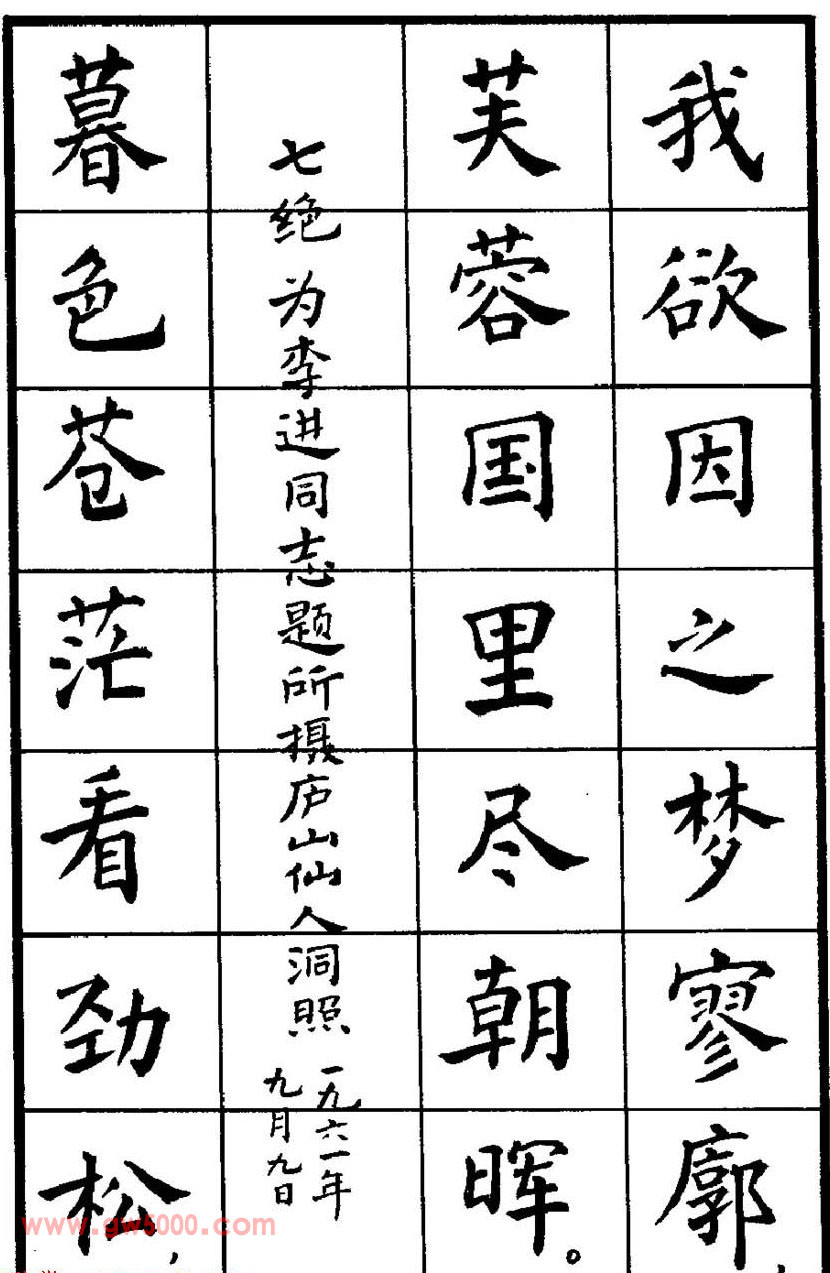 我欲因之梦寥廓，
芙蓉国里尽朝晖。
七绝 为李进同志题所摄庐山仙人洞照
一九六一年
九月九日
暮色苍茫看劲松，
www.gw5000.com